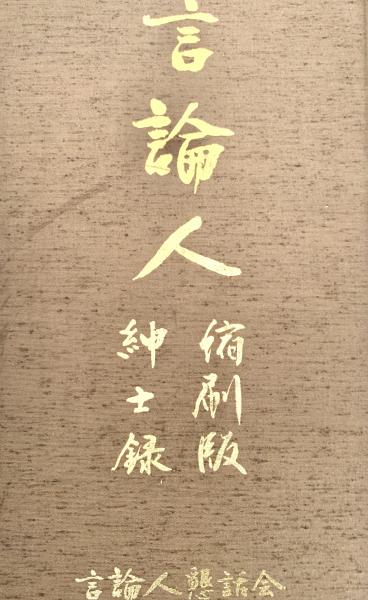 言論人
縮刷版
紳士録
言論人懇話会